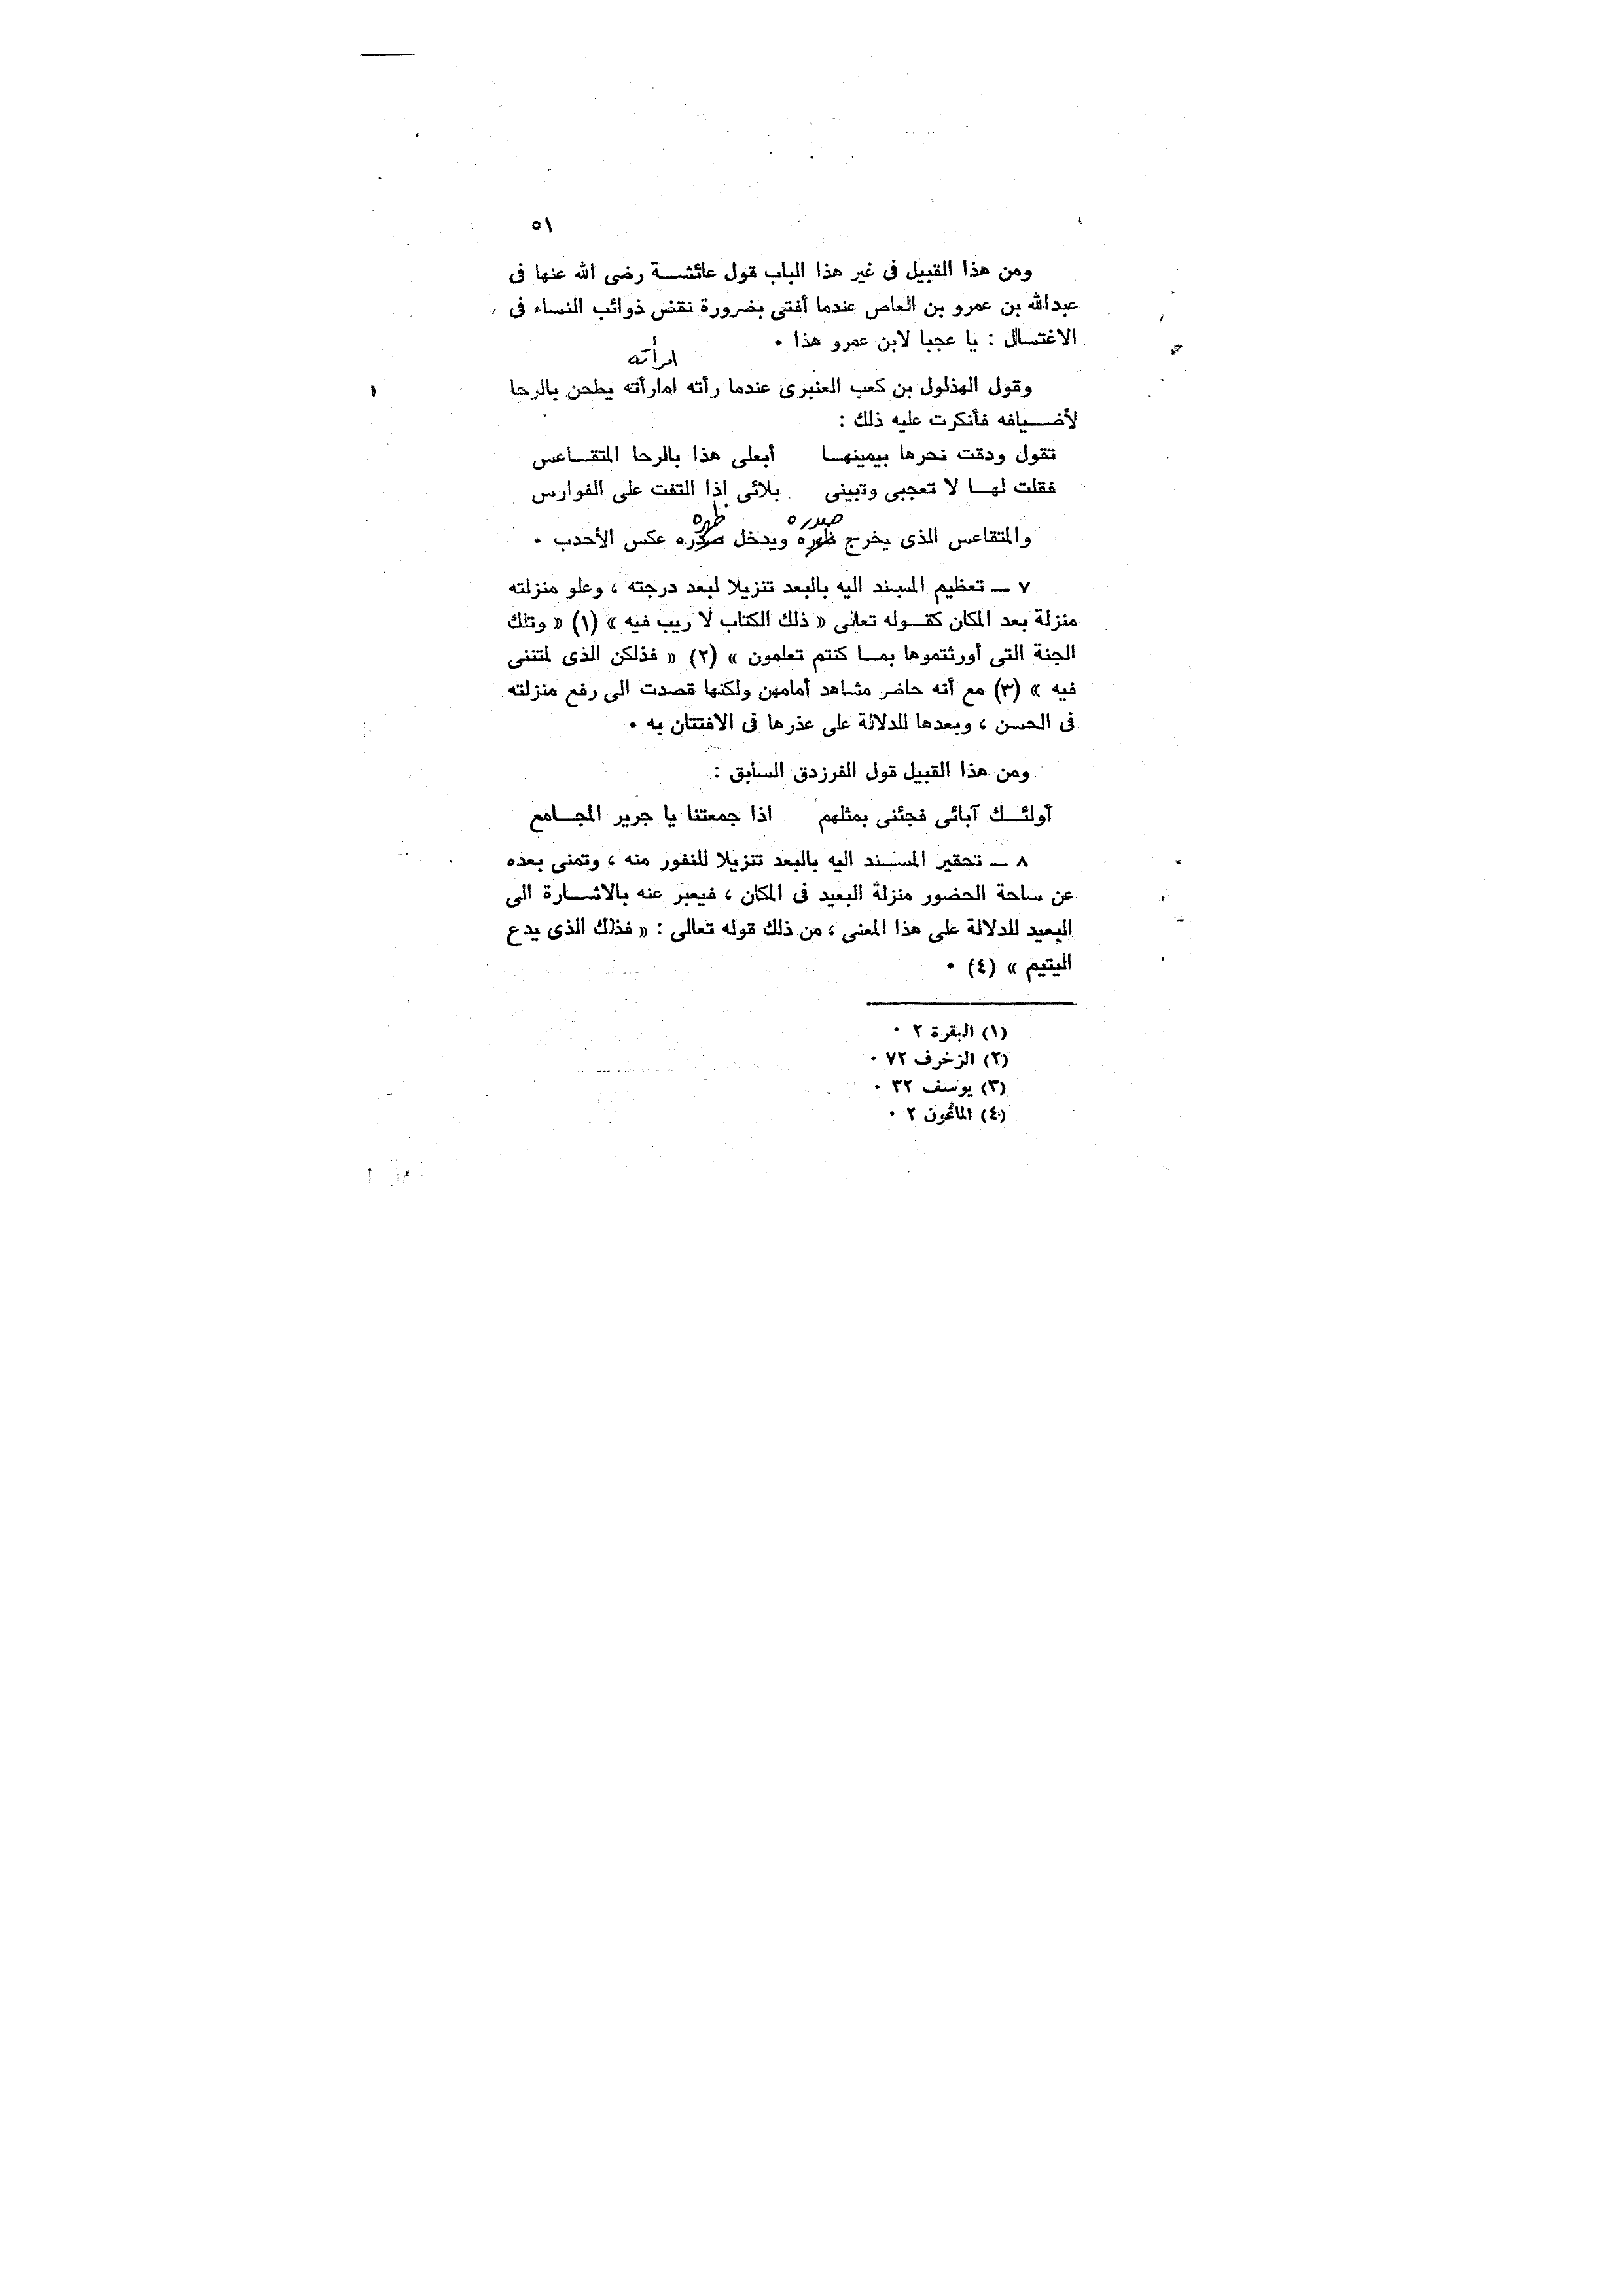 ٥١
ومن هذا القبيل فى غير هذا الباب قول عائشة رضى الله عنها فى
عبدالله بن عمرو بن العاص عندما أفتى بضرورة نقض ذوائب النساء فى
الاغتسال : يا عجبا لابن عمرو هذا ٠
امرأته
وقول الهذلول بن كعب العنبرى عندما رأته امارأته يطحن بالرحا
لأضيافه فأنكرت عليه ذلك :
تقول ودقت نحرها بيمينها أبعلى هذا بالرحا المتقاعس
فقلت لها لا تعجبى وتبينى بلائى اذا التفت على الفوارس
صدره ظهره
والمتقاعس الذى يخرج ظهره ويدخل صدره عكس الأحدب ٠
٧ ـ تعظيم المسند اليه بالبعد تنزيلا لبعد درجته ، وعلو منزلته
منزلة بعد المكان كقوله تعالى « ذلك الكتاب لا ريب فيه » (١) « وتلك
الجنة التى أورثتموها بما كنتم تعلمون » (٢) « فذلكن الذى لمتننى
فيه » (٣) مع أنه حاضر مشاهد أمامهن ولكنها قصدت الى رفع منزلته
فى الحسن ، وبعدها للدلالة على عذرها فى الافتتان به ٠
ومن هذا القبيل قول الفرزدق السابق :
أولئك آبائى فجئنى بمثلهم اذا جمعتنا يا جرير المجامع
٨ ـ تحقير المسند اليه بالبعد تنزيلا للنفور منه ، وتمنى بعده
عن ساحة الحضور منزلة البعيد فى المكان ، فيعبر عنه بالاشارة الى
البعيد للدلالة على هذا المعنى ، من ذلك قوله تعالى : « فذلك الذى يدع
اليتيم » (٤) ٠
(١) البقرة ٢ ٠
(٢) الزخرف ٧٢ ٠
(٣) يوسف ٣٢ ٠
(٤) الماعون ٢ ٠